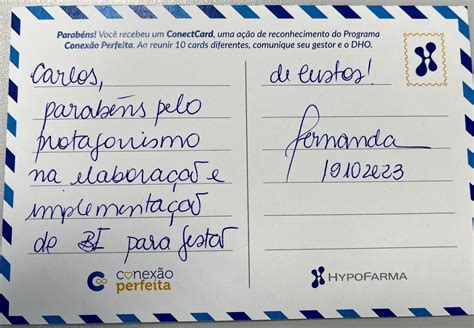 Parabéns! Você recebeu um ConectCard, uma ação de reconhecimento do Programa
Conexão Perfeita. Ao reunir 10 cards diferentes, comunique seu gestor e o DHO.
Carlos,
parabéns pelo
protagonismo
na elaboração e
implementação
de BI para gestão
de custos!
Fernanda
19102023
conexão
perfeita
HYPOFARMA